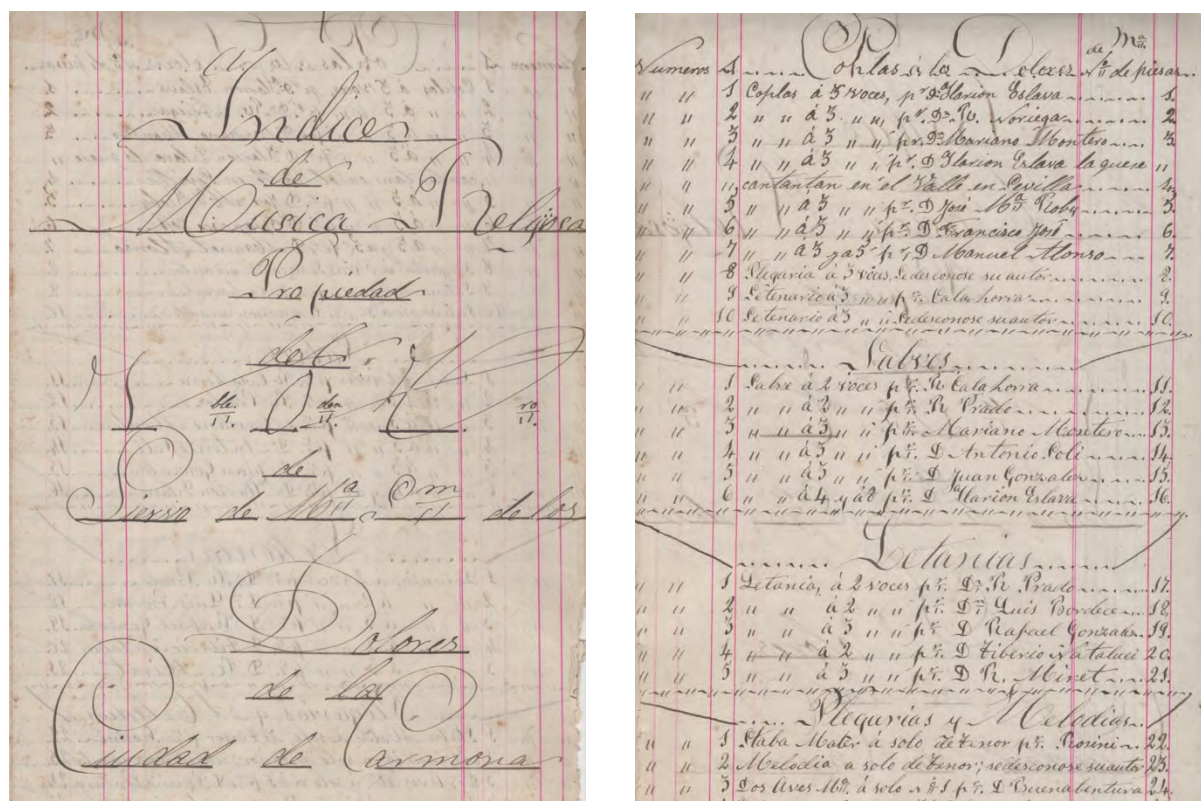 Indice
de
Musica Religiosa
Propiedad
de la
V ble. O den T ro
de
Siervos de Mª Sm dolos
Dolores
de la
Ciudad de Carmona
de Mª
Numeros Coplas á los Dolores Nº de piesas
" " 1 Coplas á 3 voces, pr Dn Ilarion Eslava 1.
" " 2 " " á 3. " " pr. Dn R. Noriega 2.
" " 3 " " á 3 " " pr. Dn Mariano Montero 3
" " 4 " " á 3 " " pr. D Ilarion Eslava la quese "
" " " cantantan en el Valle en Sevilla 4.
" " 5 " " á 3 " " pr. D José Mª 5.
" " 6 " " á 3 " " pr. D Francisco José 6.
" " 7 " " á 3 y a 5 pr. D Manuel Alonso 7.
" " 8 Pleguria a 3 voces, sedesconose su autor 8.
" " 9 Setenario á 3 " " pr. Calahorra 9.
" " 10 Setenario á 3 " " sedesconose su autor 10.
Salves
" " 1 Salve á 2 voces pr. R Calahorra 11.
" " 2 " " á 2 " " pr. R Prado 12.
" " 3 " " á 3 " " pr. Mariano Montero 13.
" " 4 " " á 3 " " pr. D Antonio Soli 14.
" " 5 " " á 3 " " pr. D Juan Gonzales 15.
" " 6 " " á 4 y á 8 pr. D Ilarion Eslava 16.
Letanias
" " 1 Letania, á 2 voces pr. Dn R Prado 17.
" " 2 " " á 2 " " pr. Dn Luis Bordece 18.
" " 3 " " á 3 " " pr. D Rafael Gonzales 19.
" " 4 " " á 2 " " pr. D Tiberio Nataluci 20.
" " 5 " " á 3 " " pr. D R. Miret 21.
Plegurias y Melodias
" " 1 Staba Mater á solo de tenor pr. Rosini 22.
" " 2 Melodia a solo de tenor; sedesconose su autor 23.
" " 3 Dos Aves Mª. á solo pr. D Buenabentura 24.